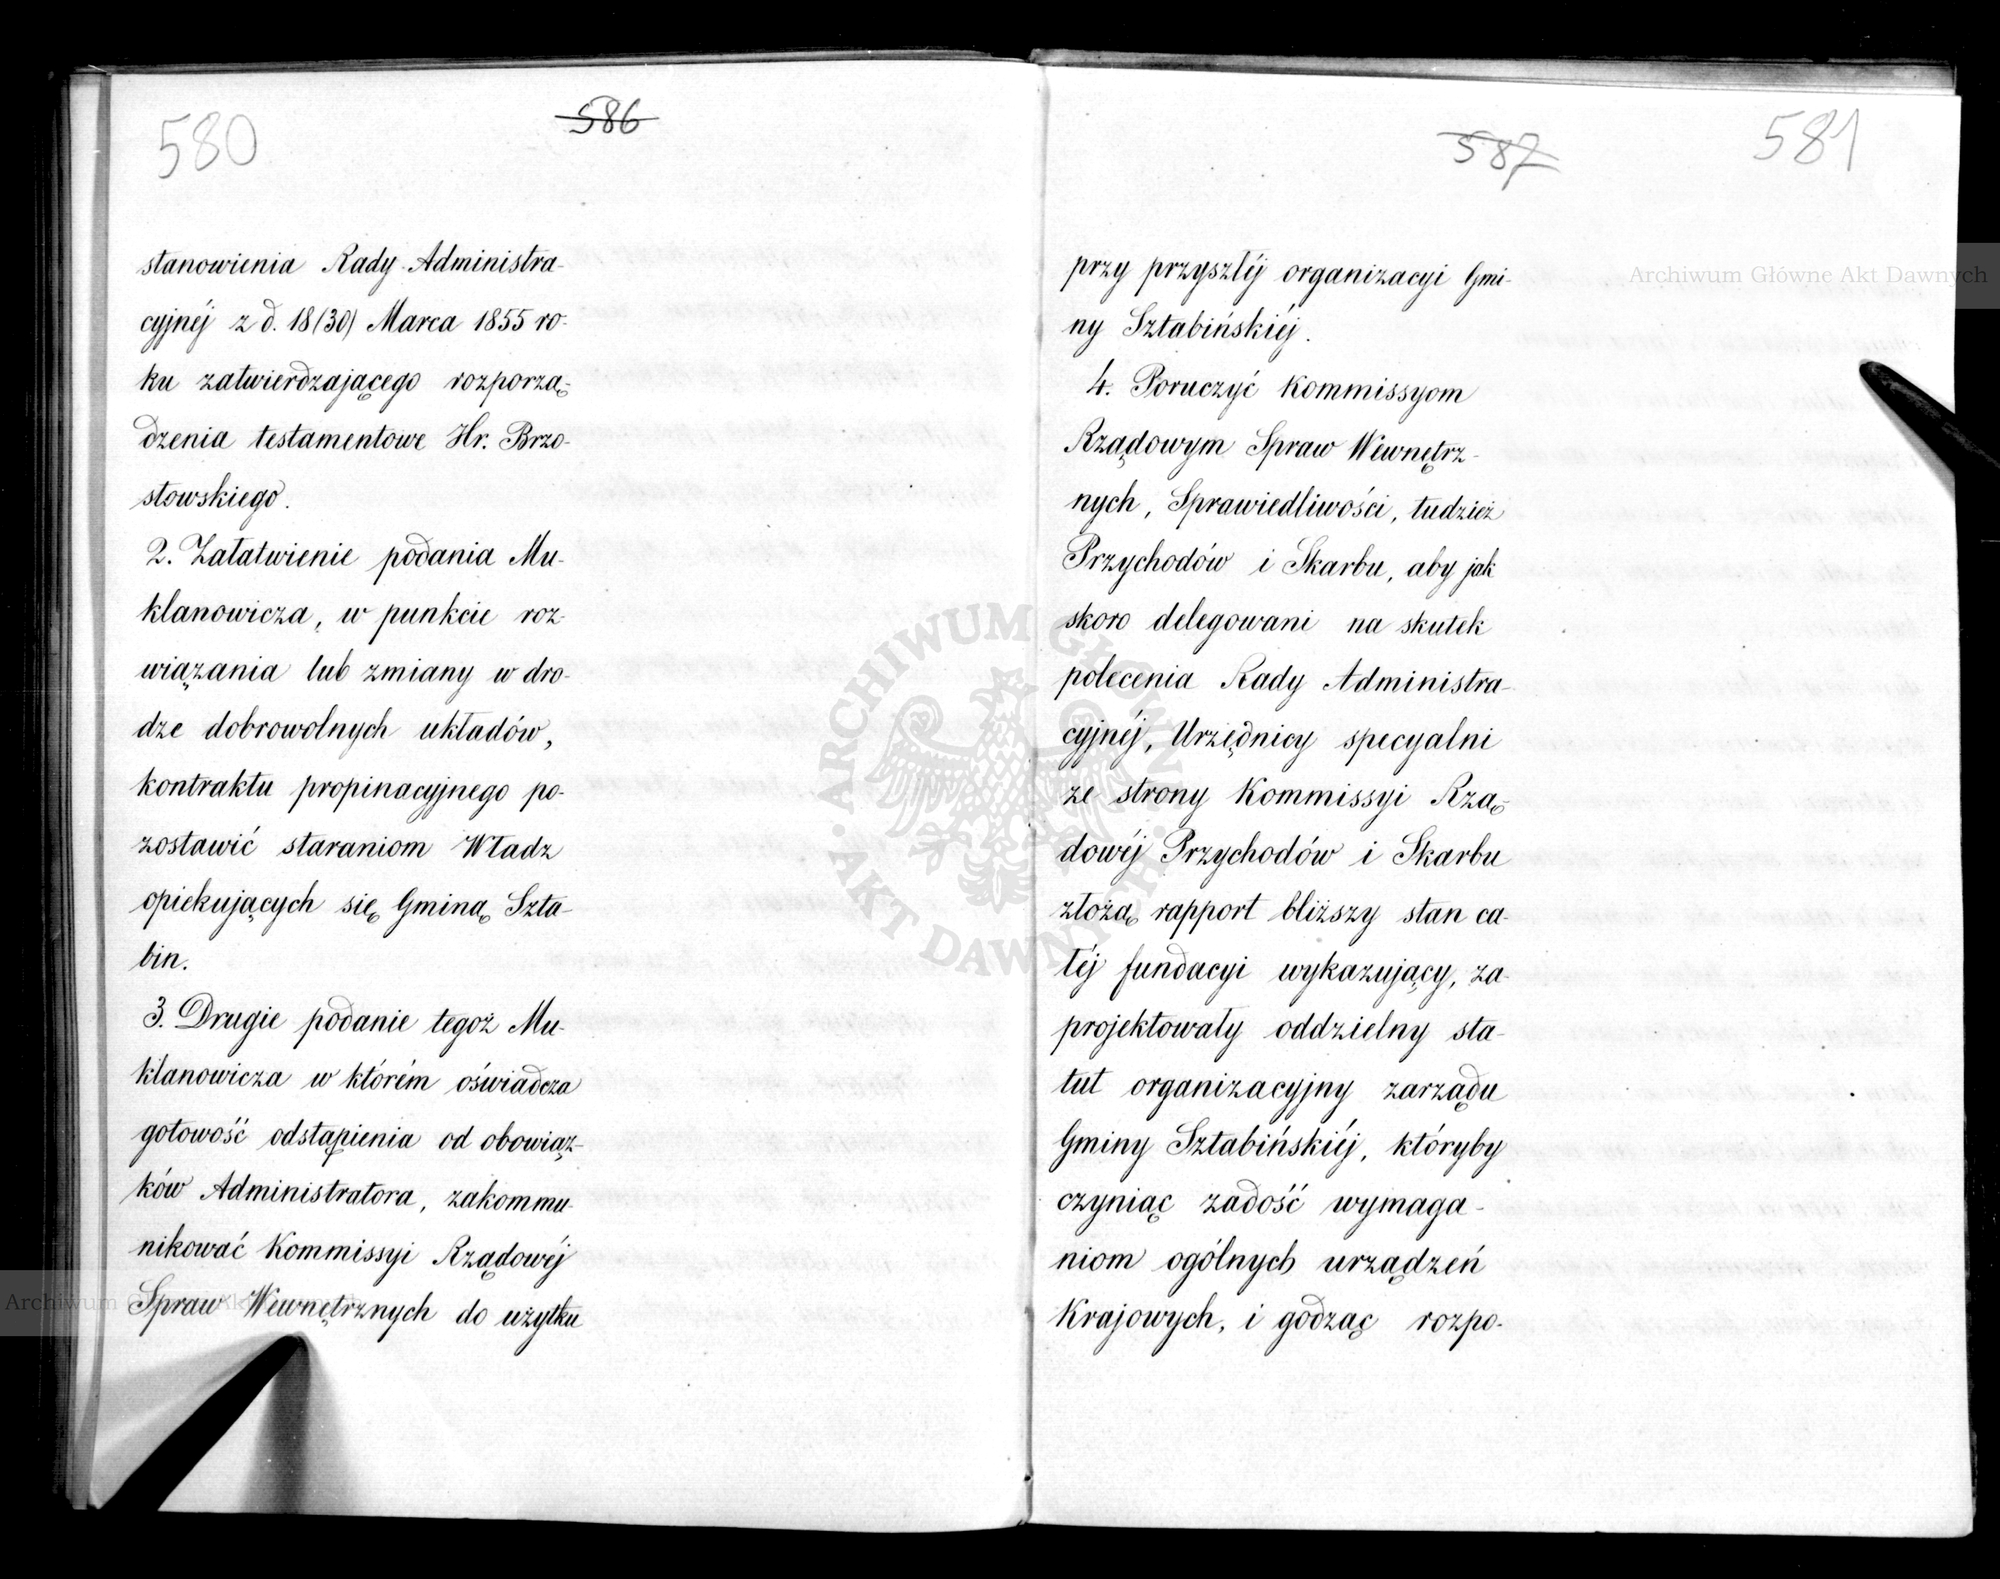 580
586
stanowienia Rady Administra-
cyjnéj z d. 18/30) Marca 1855 ro-
ku zatwierdzającego rozporzą-
dzenia testamentowe Hr. Brzo-
stowskiego.
2. Załatwienie podania Mu-
klanowicza, w punkcie roz-
wiązania lub zmiany w dro-
dze dobrowolnych układów,
kontraktu propinacyjnego po-
zostawić staraniom Władz
opiekujących się Gminą Szta-
bin.
3. Drugie podanie tegoż Mu-
klanowicza w którém oświadcza
gotowość odstąpienia od obowiąz-
ków Administratora, zakommu-
nikować Kommissyi Rządowéj
Spraw Wewnętrznych do użytku
587
581
przy przyszłéj organizacyi Gmi-
ny Sztabińskiéj.
4. Poruczyć Kommissyom
Rządowym Spraw Wewnętrz-
nych, Sprawiedliwości, tudzież
Przychodów i Skarbu, aby jak
skoro delegowani na skutek
polecenia Rady Administra-
cyjnéj, Urzędnicy specyalni
ze strony Kommissyi Rzą-
dowéj Przychodów i Skarbu
złożą rapport bliższy stan ca-
łéj fundacyi wykazujący, za-
projektowały oddzielny sta-
tut organizacyjny zarządu
Gminy Sztabińskiéj, któryby
czyniąc zadość wymaga-
niom ogólnych urządzeń
Krajowych, i godząc rozpo-
Archiwum Główne Akt Dawnych
Archiwum Główne Akt Dawnych
ARCHIWUM GŁÓWNE AKT DAWNYCH